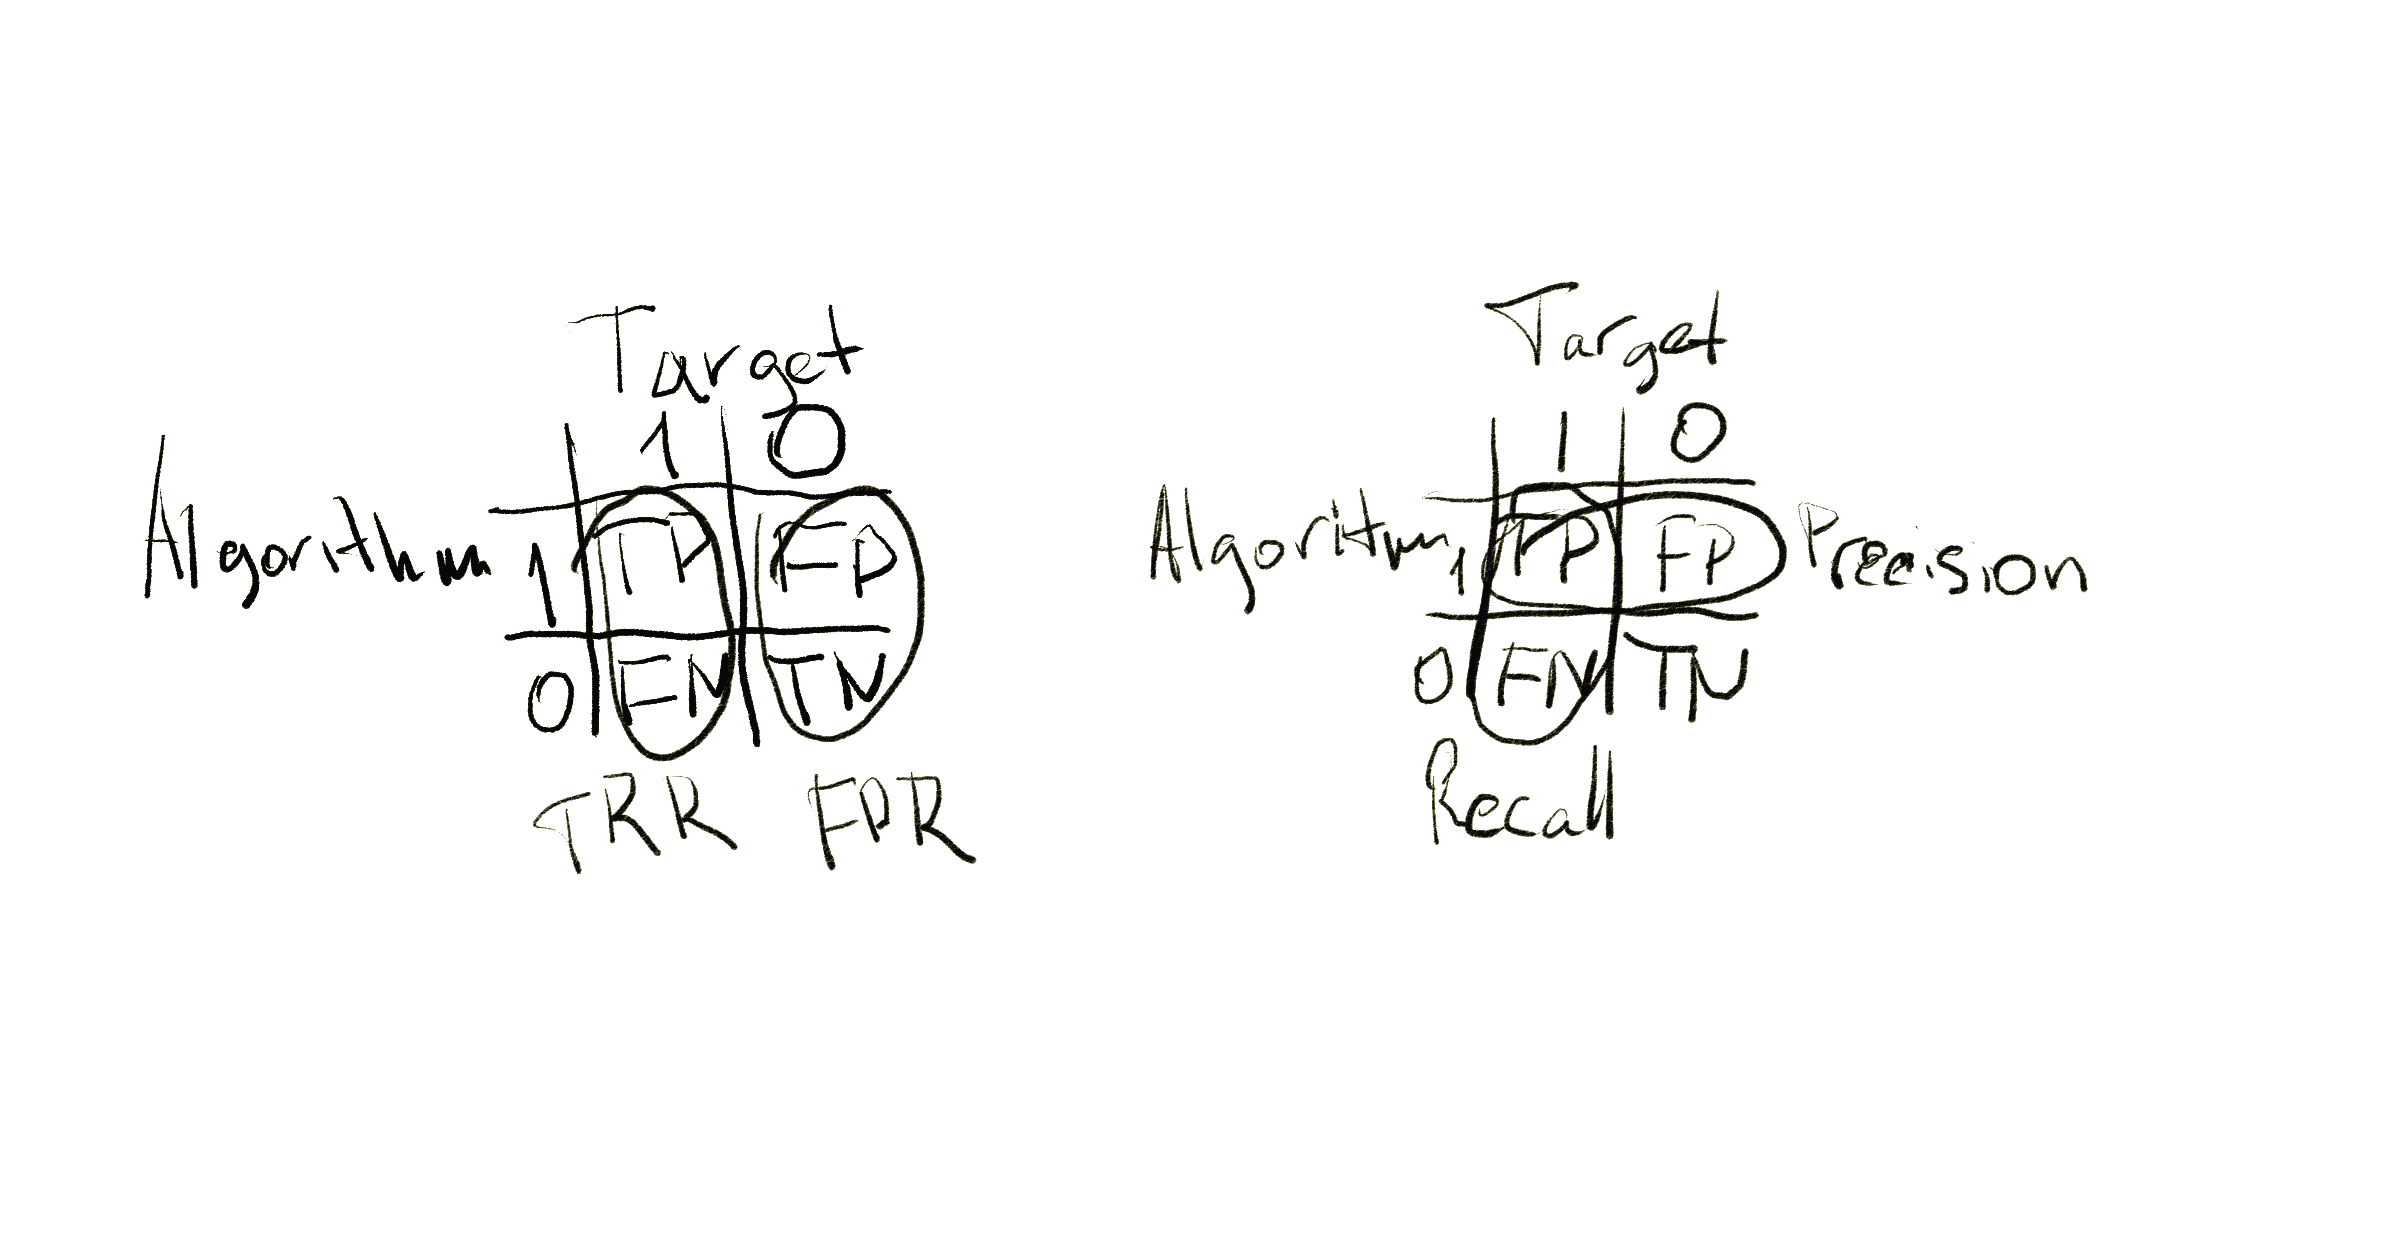 Target
1 0
Algorithm 1 TP FP
0 FN TN
TRR FPR
Target
1 0
Algoritm 1 TP FP Precision
0 FN TN
Recall